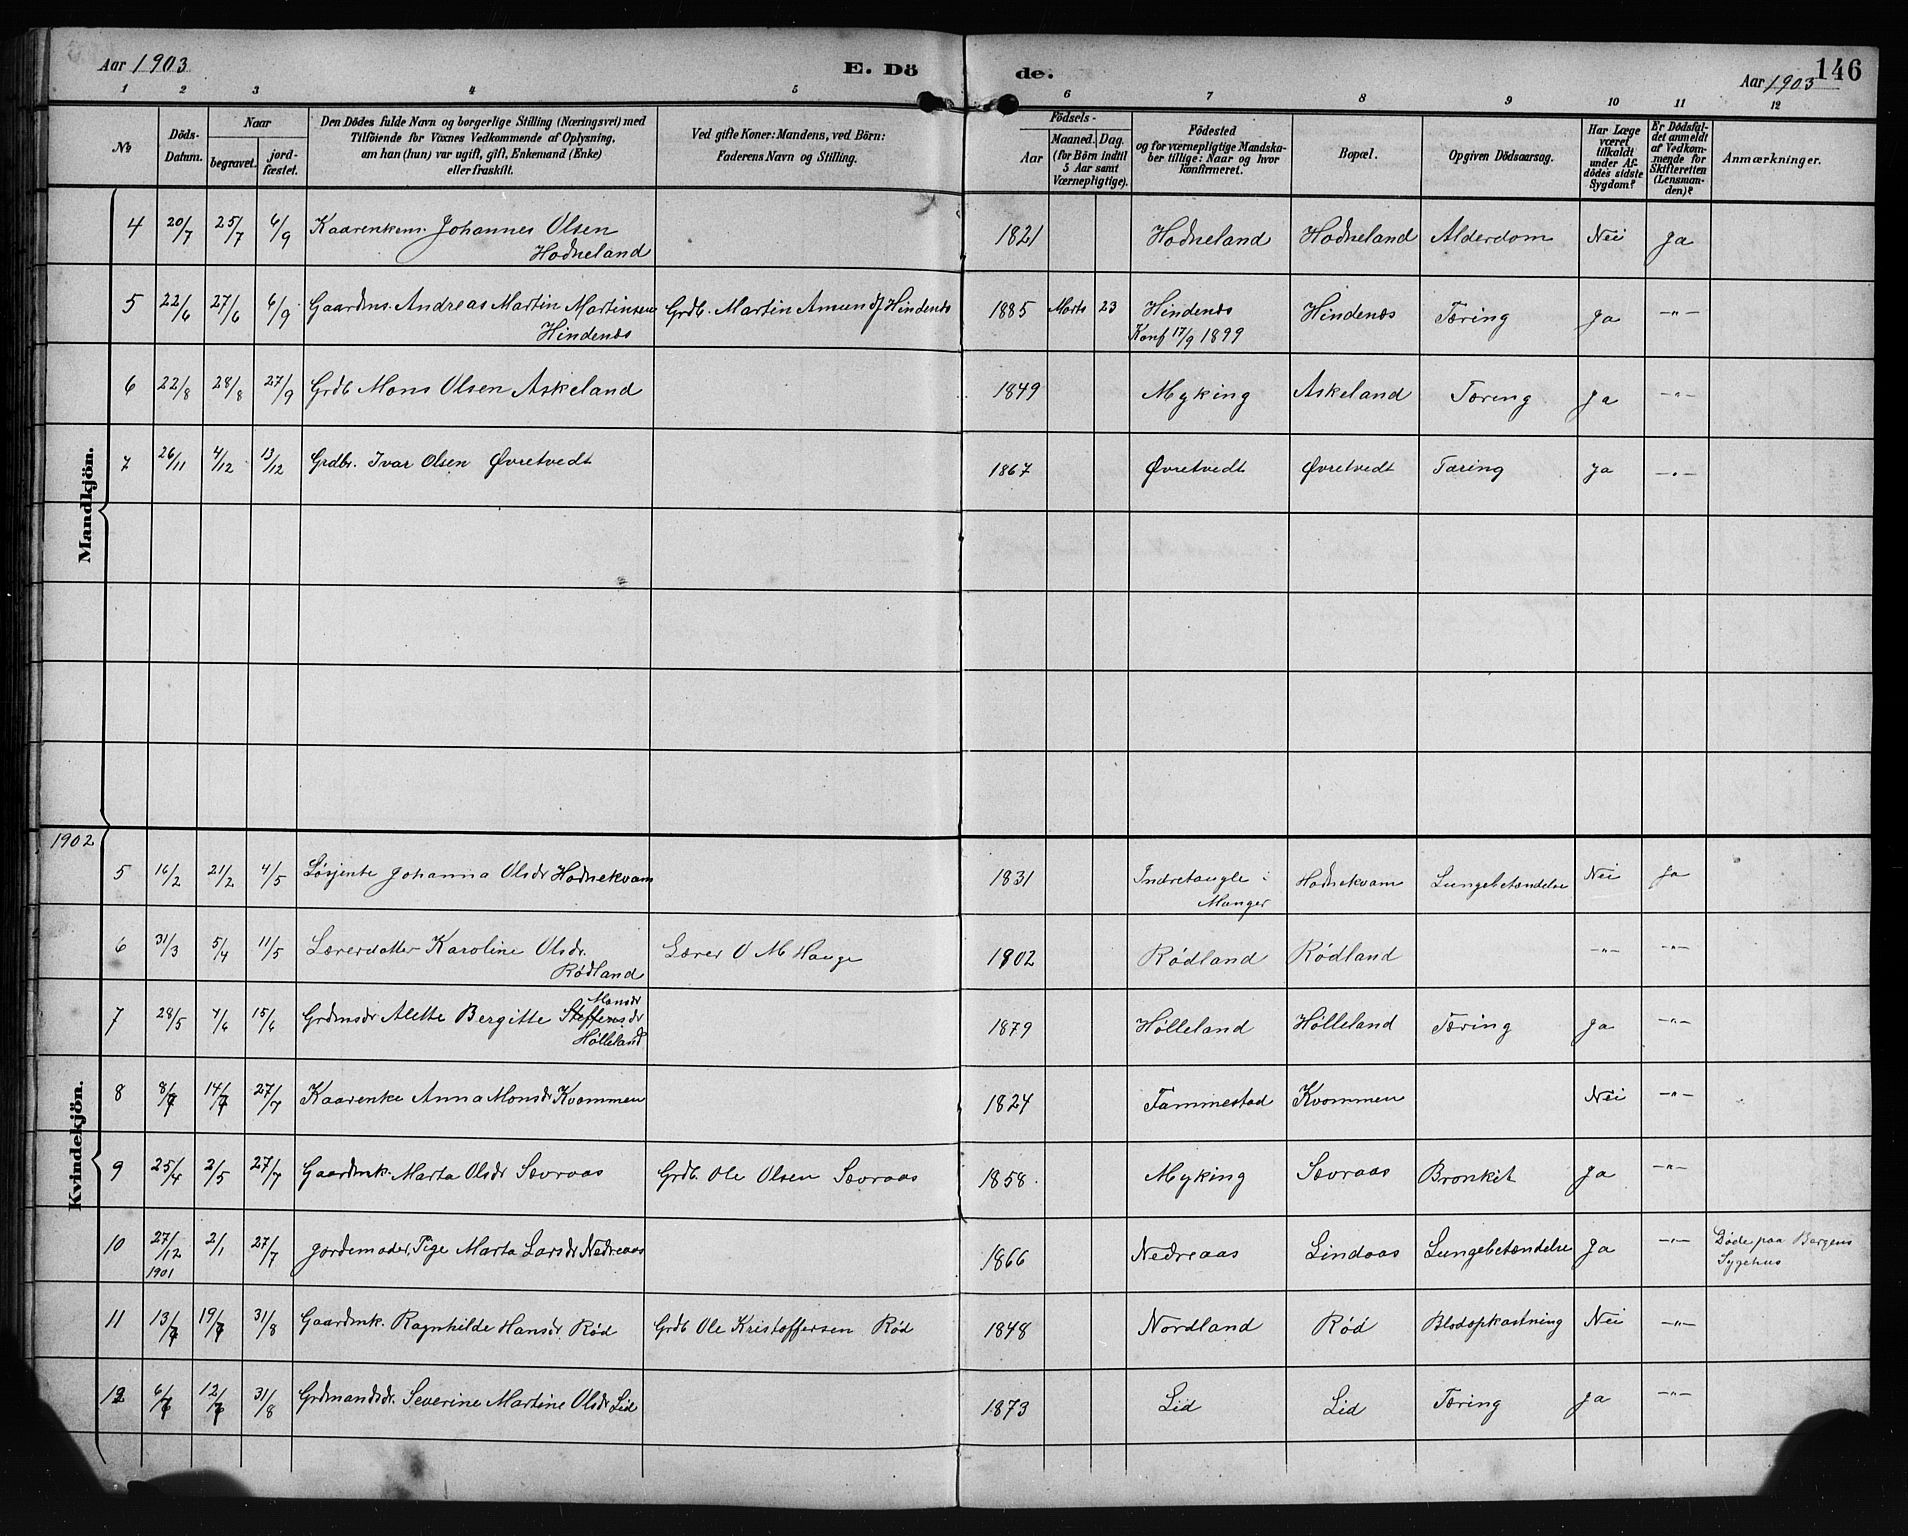 Aar 1903 E. Dö de. Aar 1903 146
1 2 3 4 5 6 7 8 9 10 11 12
№
Döds-Datum.
Naar
begravet.
jord-fæstet.
Den Dödes fulde Navn og borgerlige Stilling (Næringsvei) med
Tilföiende for Voxnes Vedkommende af Oplysning,
om han (hun) var ugift, gift, Enkemand (Enke)
eller fraskilt.
Ved gifte Koner: Mandens, ved Börn:
Faderens Navn og Stilling.
Födsels-
Aar
Maaned. Dag.
(for Börn indtil
5 Aar samt
Værnepligtige).
Födested
og for værnepligtige Mandska-
ber tillige: Naar og hvor
konfirmeret.
Bopæl.
Opgiven Dödsaarsag.
Har Læge
været
tilkaldt
under Af-
dödes sidste
Sygdom?
Er Dödsfal-
det anmeldt
af Vedkom-
mende for
Skifteretten
(Lensman-
den)?
Anmærkninger.
Mandkjön.
4 20/7 25/7 6/9 Kaarenkem. Johannes Olsen 1821 Hodneland Hodneland Alderdom Nei Ja
Hodneland
5 22/6 27/6 6/9 Gaardms. Andreas Martin Martinsen Grdb. Martin Amundsf Hindenes 1885 Marts 23 Hindenes Hindenes Tæring Ja -"-
Hindenes Konf 17/9 1899
6 22/8 28/8 27/9 Grdb Mons Olsen Askeland 1849 Myking Askeland Tæring Ja -"-
7 26/11 4/12 13/12 Grdbr. Ivar Olsen Øvretvedt 1867 Øvretvedt Øvretvedt Tæring Ja -"-
1902
Kvindekjön.
5 16/2 21/2 4/5 Løsjente Johanna Olsdr Hodnekvam 1831 Indretaugle i Hodnekvam Lungebetændelse Nei Ja
Manger
6 31/3 5/4 11/5 Lærerdatter Karoline Olsdr. Lærer O M Hauge 1902 Rødland Rødland -"- -"-
Rødland
Monsdr
7 28/5 4/6 15/6 Grdmsdr Alette Bergitte Steffensdr 1879 Hølleland Hølleland Tæring Ja -"-
Hølleland
8 8/7 14/7 27/7 Kaarenke Anna Monsdr Kvommen 1824 Fammestad Kvommen Nei -"-
9 25/4 2/5 27/7 Gaardmk. Marta Olsdr Sævraas Grdb. Ole Olsen Sævraas 1858 Myking Sævraas Bronkit Ja -"-
10 27/12 2/1 27/7 Jordemoder, Pige Marta Larsdr Nedreaas 1866 Nedreaas Lindaas Lungebetændelse Ja -"- Døde paa Bergens
1901 Sygehus
11 13/7 19/7 31/8 Gaardmk. Ragnhilde Hansdr. Rød Grdb Ole Kristoffersen Rød 1848 Nordland Rød Blodopkastning Nei -"-
12 6/7 12/7 31/8 Grdmandsdr. Severine Martine Olsdr Lid 1873 Lid Lid Tæring Ja -"-